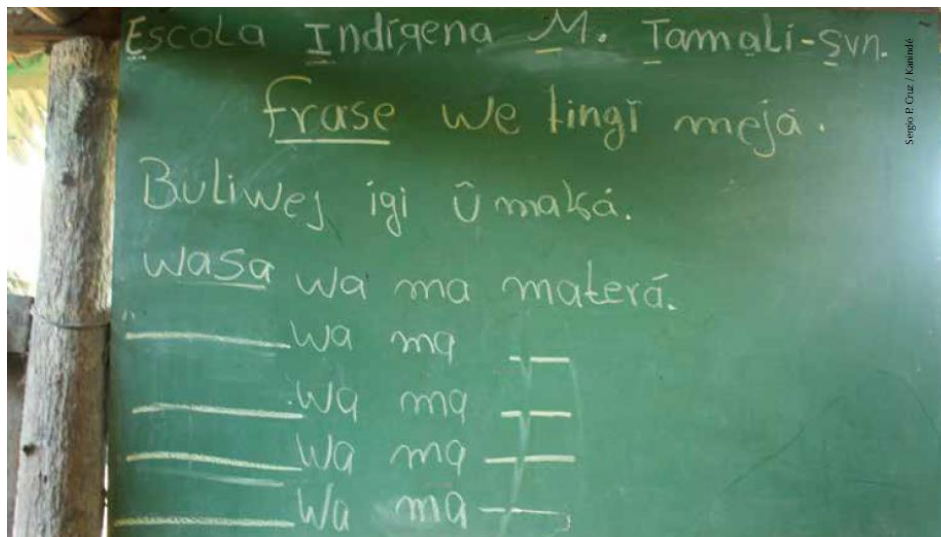 Escola Indígena M. Tamali-Syn.
frase we tingĩ mejá.
Buliwej igi ũmaká.
wasa wa ma materá.
_____ wa ma __
_____ wa ma __
_____ wa ma __
_____ wa ma __
Sergio P. Cruz / Kanindé